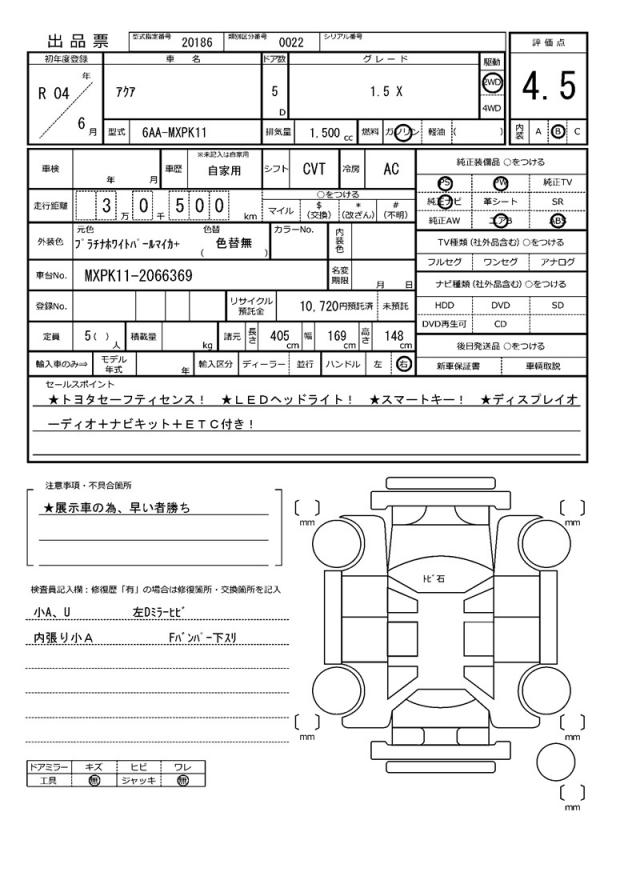 出品票 型式指定番号 20186 類別区分番号 0022 シリアル番号
評価点
4.5
初年度登録 車名 ドア数 グレード 駆動
R 04 年 6 月 アクア 5 D 1.5 X 2WD 4WD
型式 6AA-MXPK11 排気量 1.500 cc 燃料 ガソリン 軽油 ( ) 内装 A B C
車検 年 月 車歴 ※未記入は自家用 自家用 シフト CVT 冷房 AC
走行距離 3 万 0 千 5 0 0 km
○をつける
マイル $ (交換) * (改ざん) # (不明)
外装色 元色 プラチナホワイトパールマイカ+ 色替 ( 色替無 ) カラーNo. 内装色
車台No. MXPK11-2066369 名変期限 月 日
登録No. リサイクル預託金 10,720円預託済 未預託
定員 5( ) 人 積載量 kg 諸元 長さ 405 cm 幅 169 cm 高さ 148 cm
輸入車のみ⇒ モデル年式 年 輸入区分 ディーラー 並行 ハンドル 左 右
純正装備品 ○をつける
PS PW 純正TV
純正ナビ 革シート SR
純正AW エアB ABS
TV種類 (社外品含む) ○をつける
フルセグ ワンセグ アナログ
ナビ種類 (社外品含む) ○をつける
HDD DVD SD
DVD再生可 CD
後日発送品 ○をつける
新車保証書 車輌取説
セールスポイント
★トヨタセーフティセンス! ★LEDヘッドライト! ★スマートキー! ★ディスプレイオ
ーディオ+ナビキット+ETC付き!
注意事項・不具合箇所
★展示車の為、早い者勝ち
検査員記入欄:修復歴「有」の場合は修復箇所・交換箇所を記入
小A、U 左Dミラーヒビ
内張り小A Fバンパー下スリ
ドアミラー キズ ヒビ ワレ
工具 無 ジャッキ 無
〔 〕 mm
〔 〕 mm
トビ石
〔 〕 mm
〔 〕 mm
〔 〕 mm